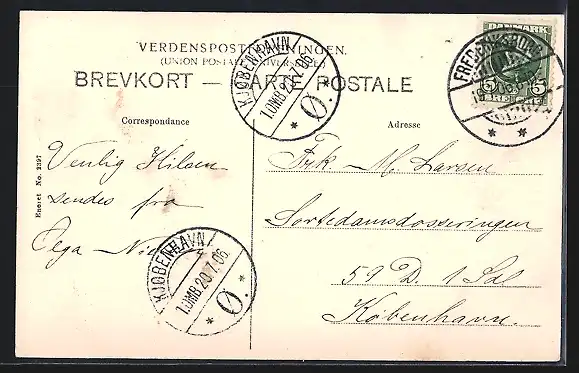 VERDENSPOSTFORENINGEN.
(UNION POSTALE UNIVERSELLE)
BREVKORT — CARTE POSTALE
Correspondance
Adresse
Eneret No. 2397
Venlig Hilsen
sendes fra
Frk M. Larsen
Sortedamsdosseringen
59 D. 1 Sal
København.
KJØBENHAVN
1.OMB. 20.7.06
Ø.
KJØBENHAVN
1.OMB. 20.7.06
Ø.
DANMARK
5 5
FREDERIKSSUND